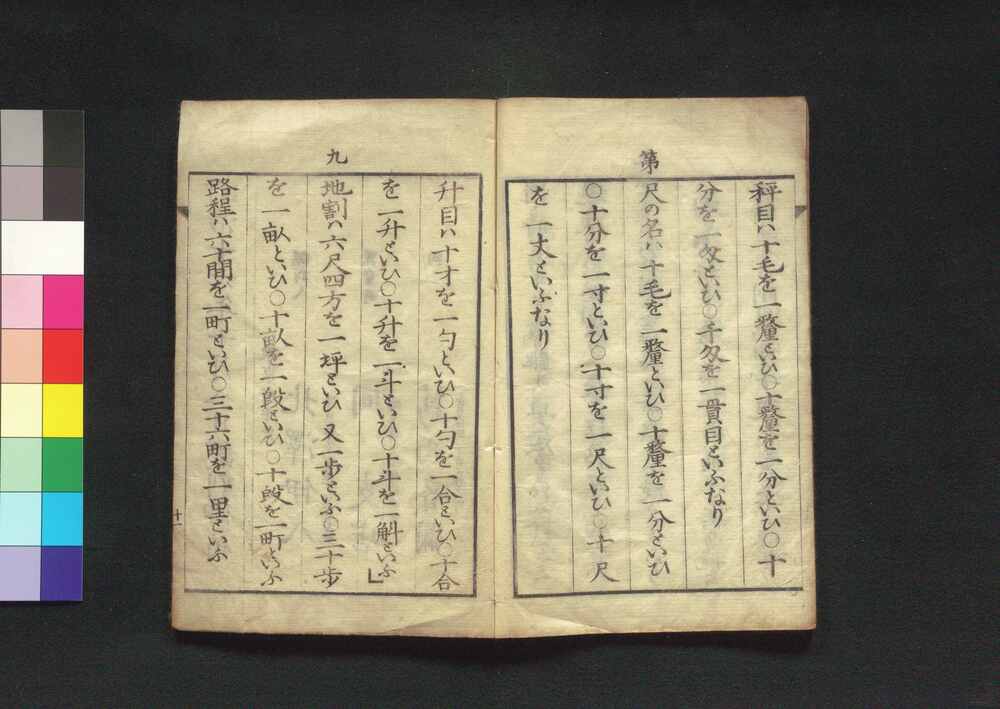 第
秤目ハ十毛を一釐といひ○十釐を一分といひ○十
分を一匁といひ○千匁を一貫目といふなり
尺の名ハ十毛を一釐といひ○十釐を一分といひ
○十分を一寸といひ○十寸を一尺といひ○十尺
を一丈といふなり
九
升目ハ十才を一勺といひ○十勺を一合といひ○十合
を一升といひ○十升を一斗といひ○十斗を一斛といふ」
地割ハ六尺四方を一坪といひ又一歩といふ○三十歩
を一畝といひ○十畝を一段といひ○十段を一町といふ
路程ハ六十間を一町といひ○三十六町を一里といふ
十一